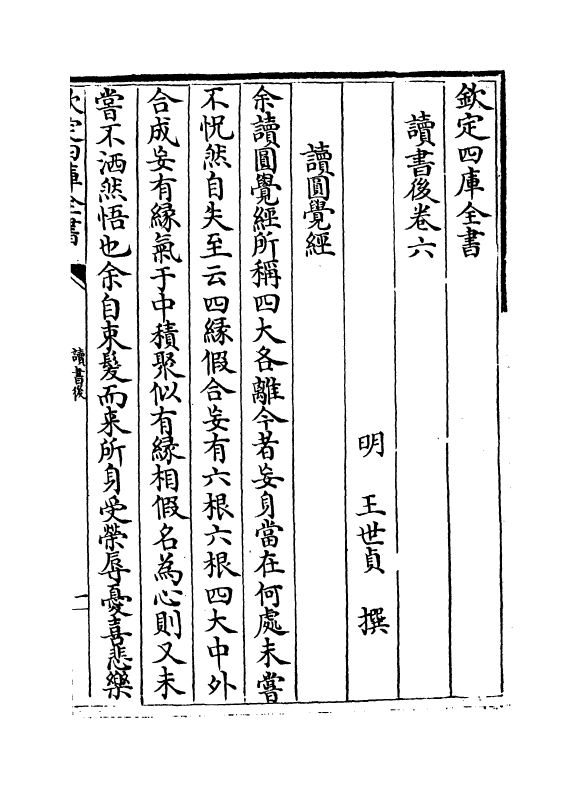 欽定四庫全書
讀書後卷六
明 王世貞 撰
讀圓覺經
余讀圓覺經所稱四大各離今者妄身當在何處未嘗
不怳然自失至云四縁假合妄有六根六根四大中外
合成妄有縁氣于中積聚似有縁相假名為心則又未
嘗不洒然悟也余自束髮而来所身受榮辱憂喜悲樂
欽定四庫全書
讀書後
一